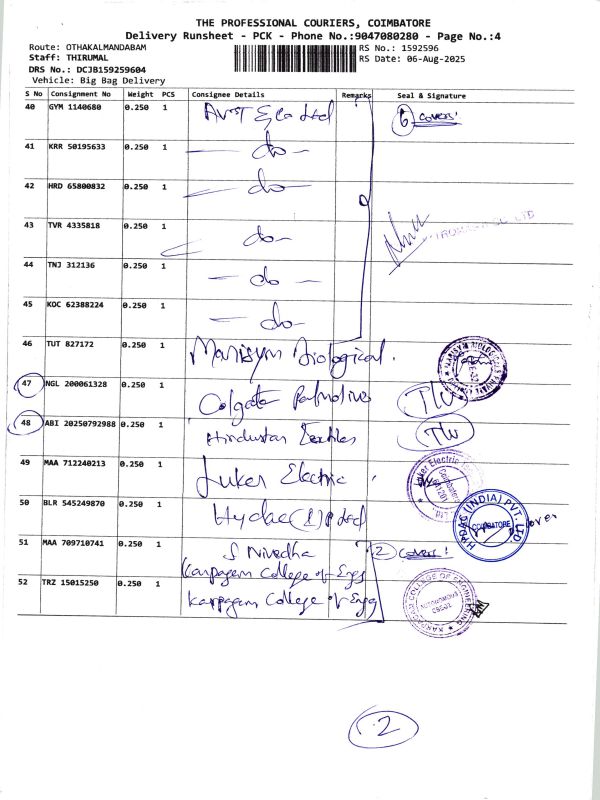 THE PROFESSIONAL COURIERS, COIMBATORE
Delivery Runsheet - PCK - Phone No.:9047080280 - Page No.:4
Route: OTHAKALMANDABAM
RS No.: 1592596
Staff: THIRUMAL
RS Date: 06-Aug-2025
DRS No.: DCJB159259604
Vehicle: Big Bag Delivery
S No Consignment No Weight PCS Consignee Details Remarks Seal & Signature
40 GYM 1140680 0.250 1 & Co Ltd 6 covers'
41 KRR 50195633 0.250 1 — do —
42 HRD 65800832 0.250 1 — do —
43 TVR 4335818 0.250 1 — do —
44 TNJ 312136 0.250 1 — do —
45 KOC 62388224 0.250 1 — do —
46 TUT 827172 0.250 1 Marisym Biological.
47 NGL 200061328 0.250 1 Colgate Palmolive
48 ABI 20250792988 0.250 1 Hindustan Textiles
49 MAA 712240213 0.250 1 Luker Electric
50 BLR 545249870 0.250 1 Hydac (I) P Ltd
HYDAC (INDIA) PVT. LTD.
COIMBATORE
51 MAA 709710741 0.250 1 S Nivedha 2 covers!
Karpagam College of Engg
52 TRZ 15015250 0.250 1 Karpagam College of Engg
KARPAGAM COLLEGE OF ENGINEERING
AUTONOMOUS
2